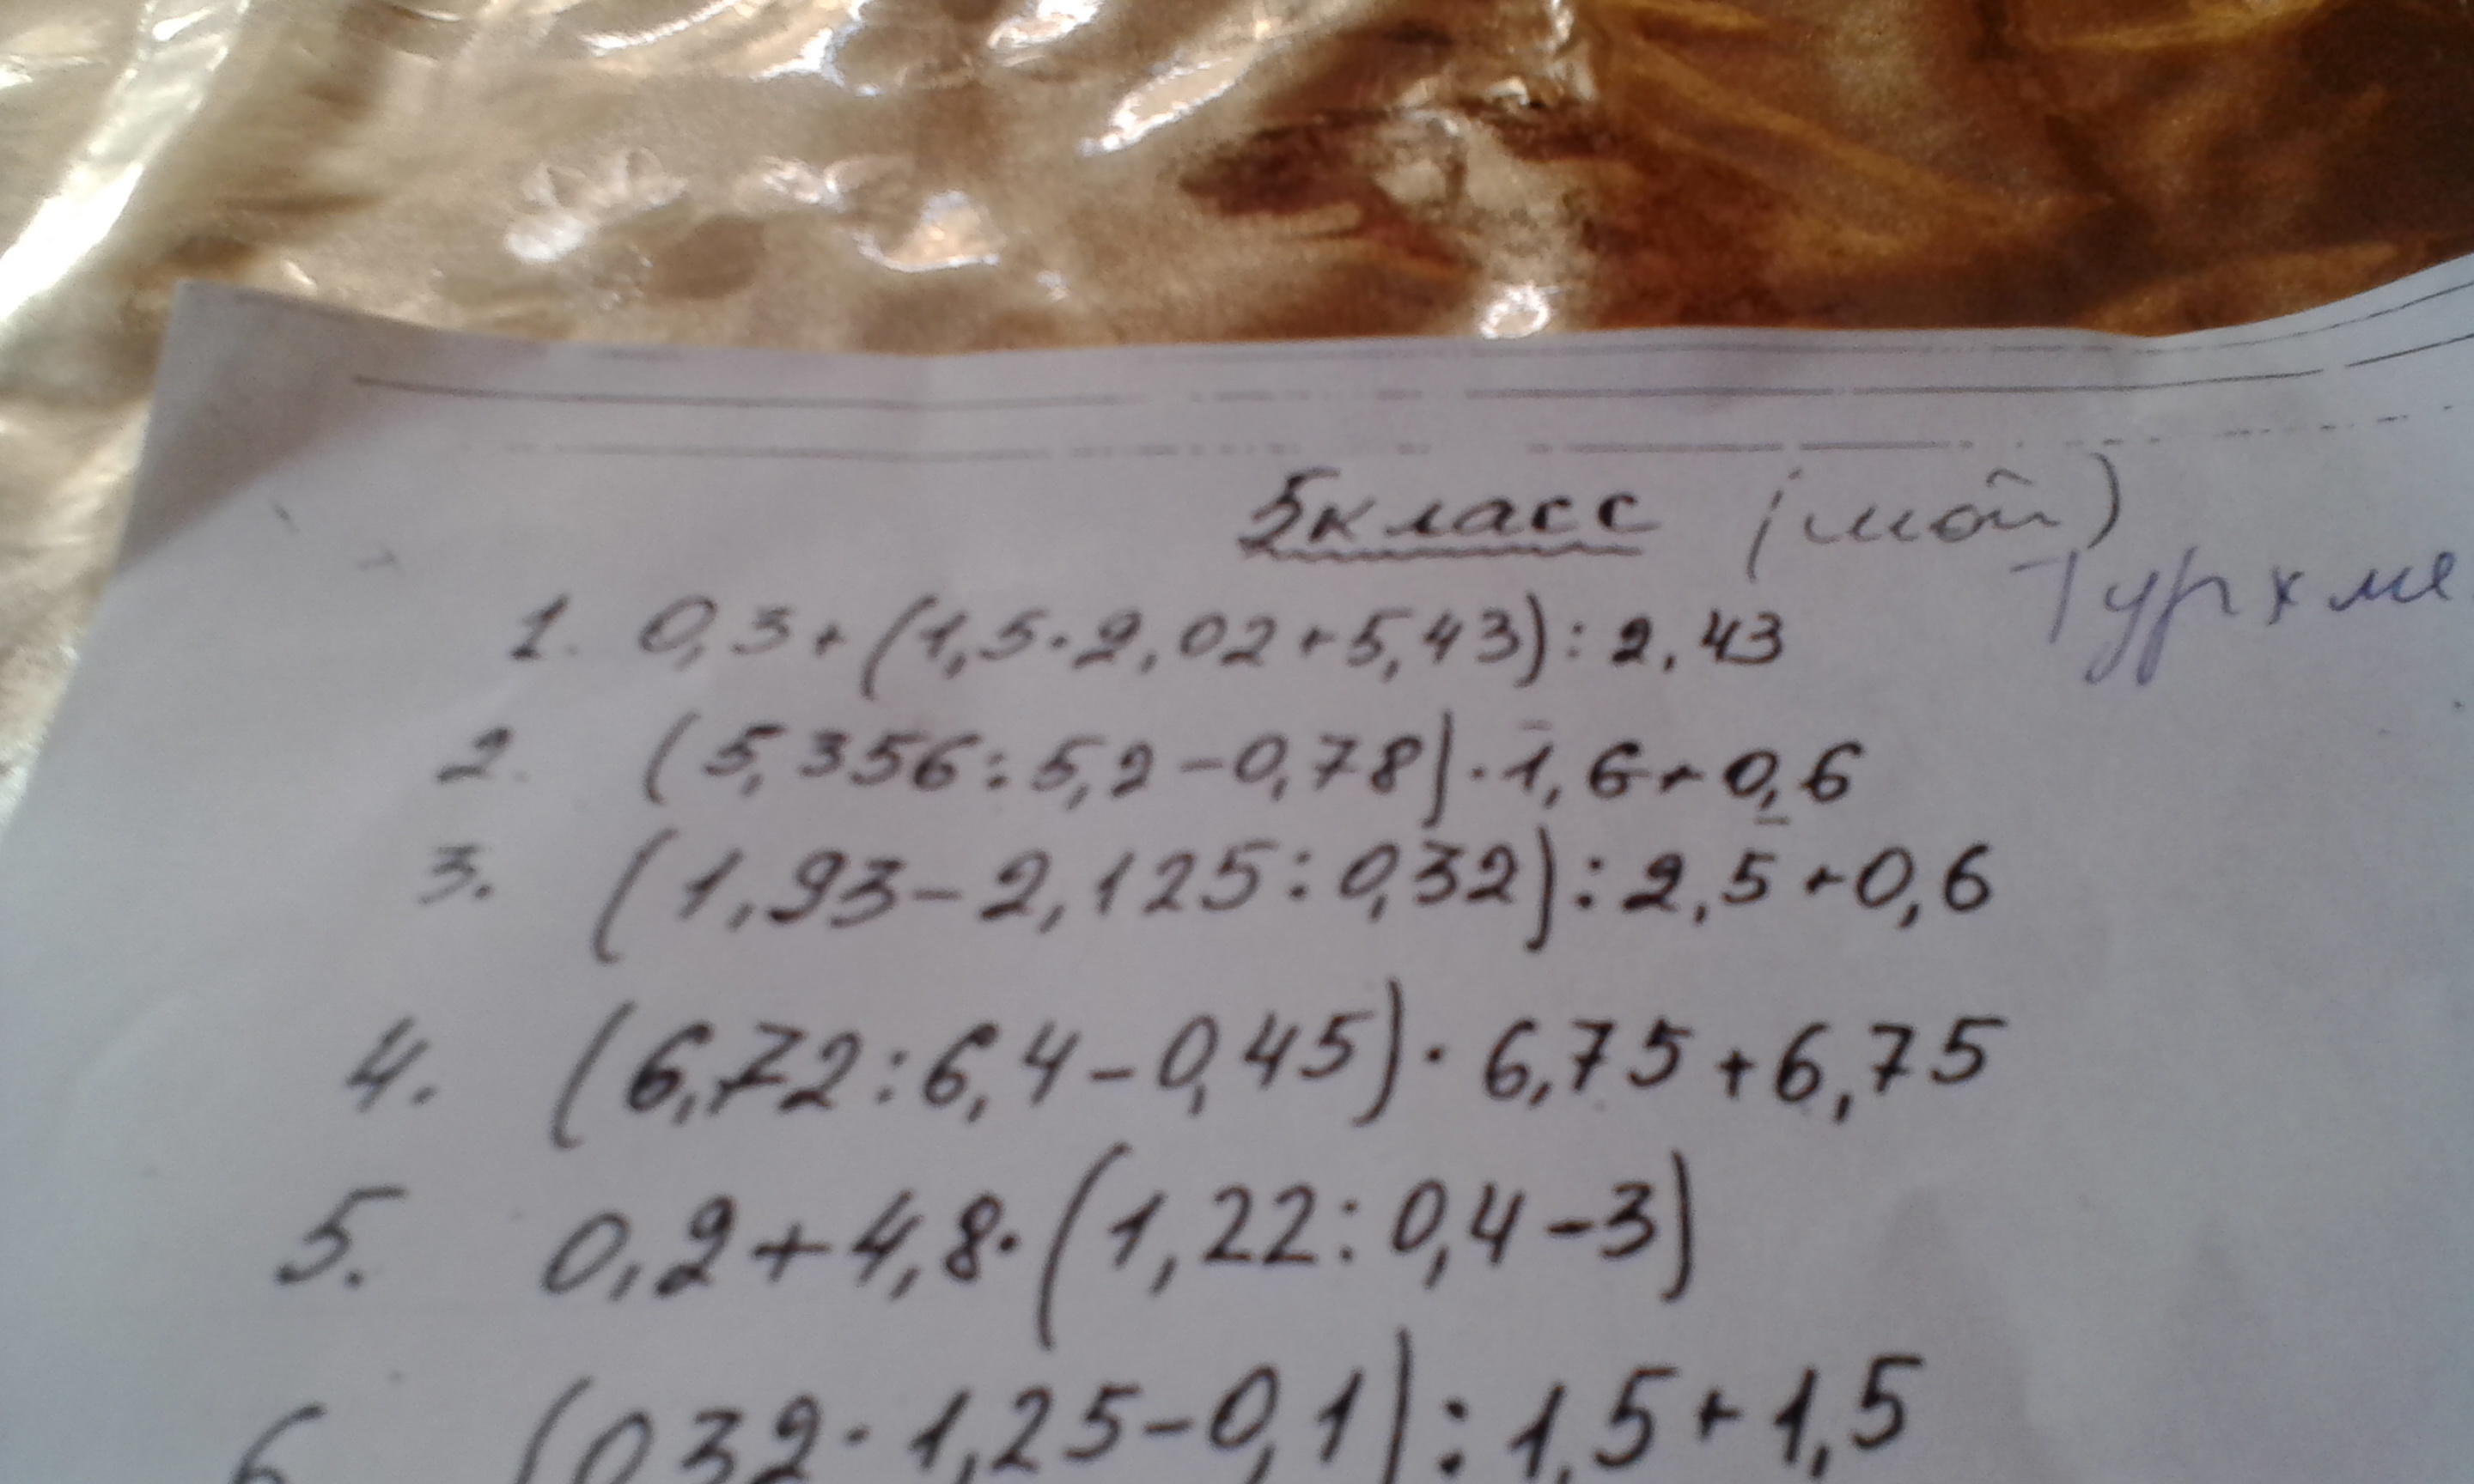 5 класс (мой)
1. 0,3+(1,5·2,02+5,43):2,43
2. (5,356:5,2-0,78)·1,6+0,6
3. (1,93-2,125:0,32):2,5+0,6
4. (6,72:6,4-0,45)·6,75+6,75
5. 0,2+4,8·(1,22:0,4-3)
6 (0,32·1,25-0,1):1,5+1,5